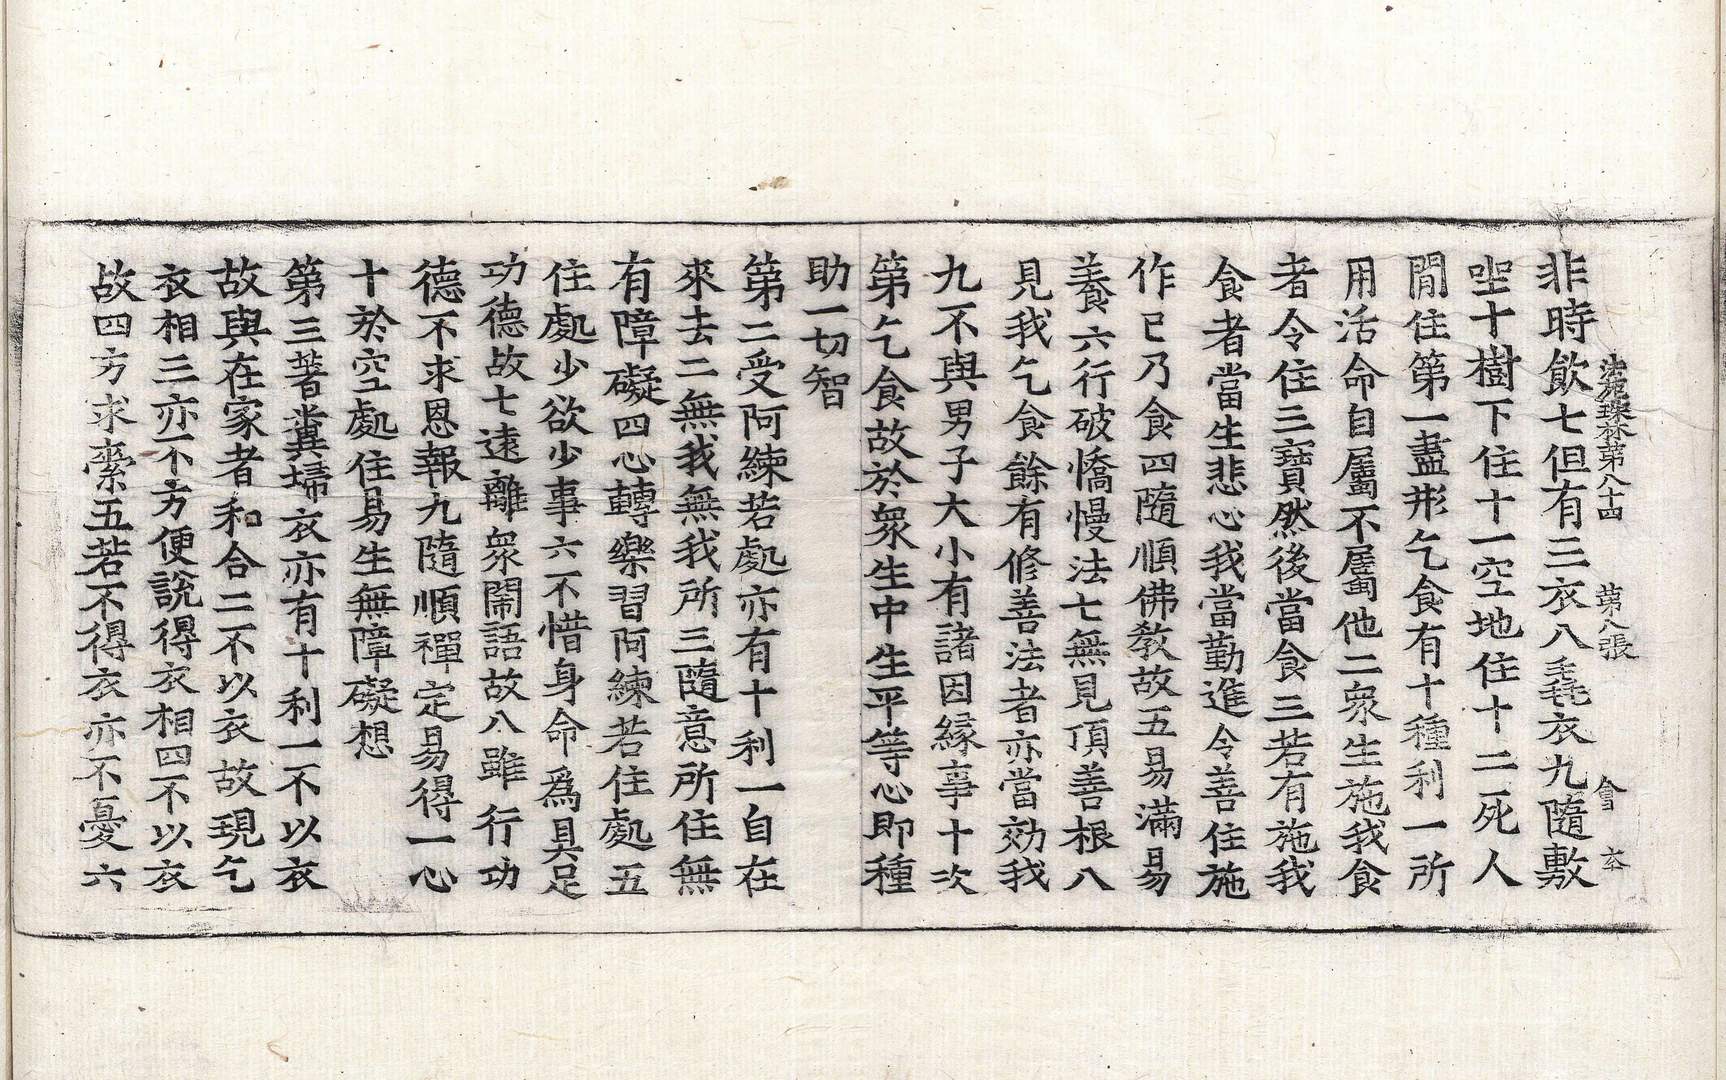 法苑珠林第八十四 第八張 會 六
非時飲七但有三衣八毳衣九隨敷
坐十樹下住十一空地住十二死人
閒住第一盡形乞食有十種利一所
用活命自屬不屬他二衆生施我食
者令住三寶然後當食三若有施我
食者當生悲心我當勤進令善住施
作已乃食四隨順佛教故五易滿易
養六行破憍慢法七無見頂善根八
見我乞食餘有修善法者亦當効我
九不與男子大小有諸因緣事十次
第乞食故於衆生中生平等心即種
助一切智
第二受阿練若處亦有十利一自在
來去二無我無我所三隨意所住無
有障礙四心轉樂習阿練若住處五
住處少欲少事六不惜身命爲具足
功德故七遠離衆閙語故八雖行功
德不求恩報九隨順禪定易得一心
十於空處住易生無障礙想
第三著糞掃衣亦有十利一不以衣
故與在家者和合二不以衣故現乞
衣相三亦不方便說得衣相四不以衣
故四方求索五若不得衣亦不憂六